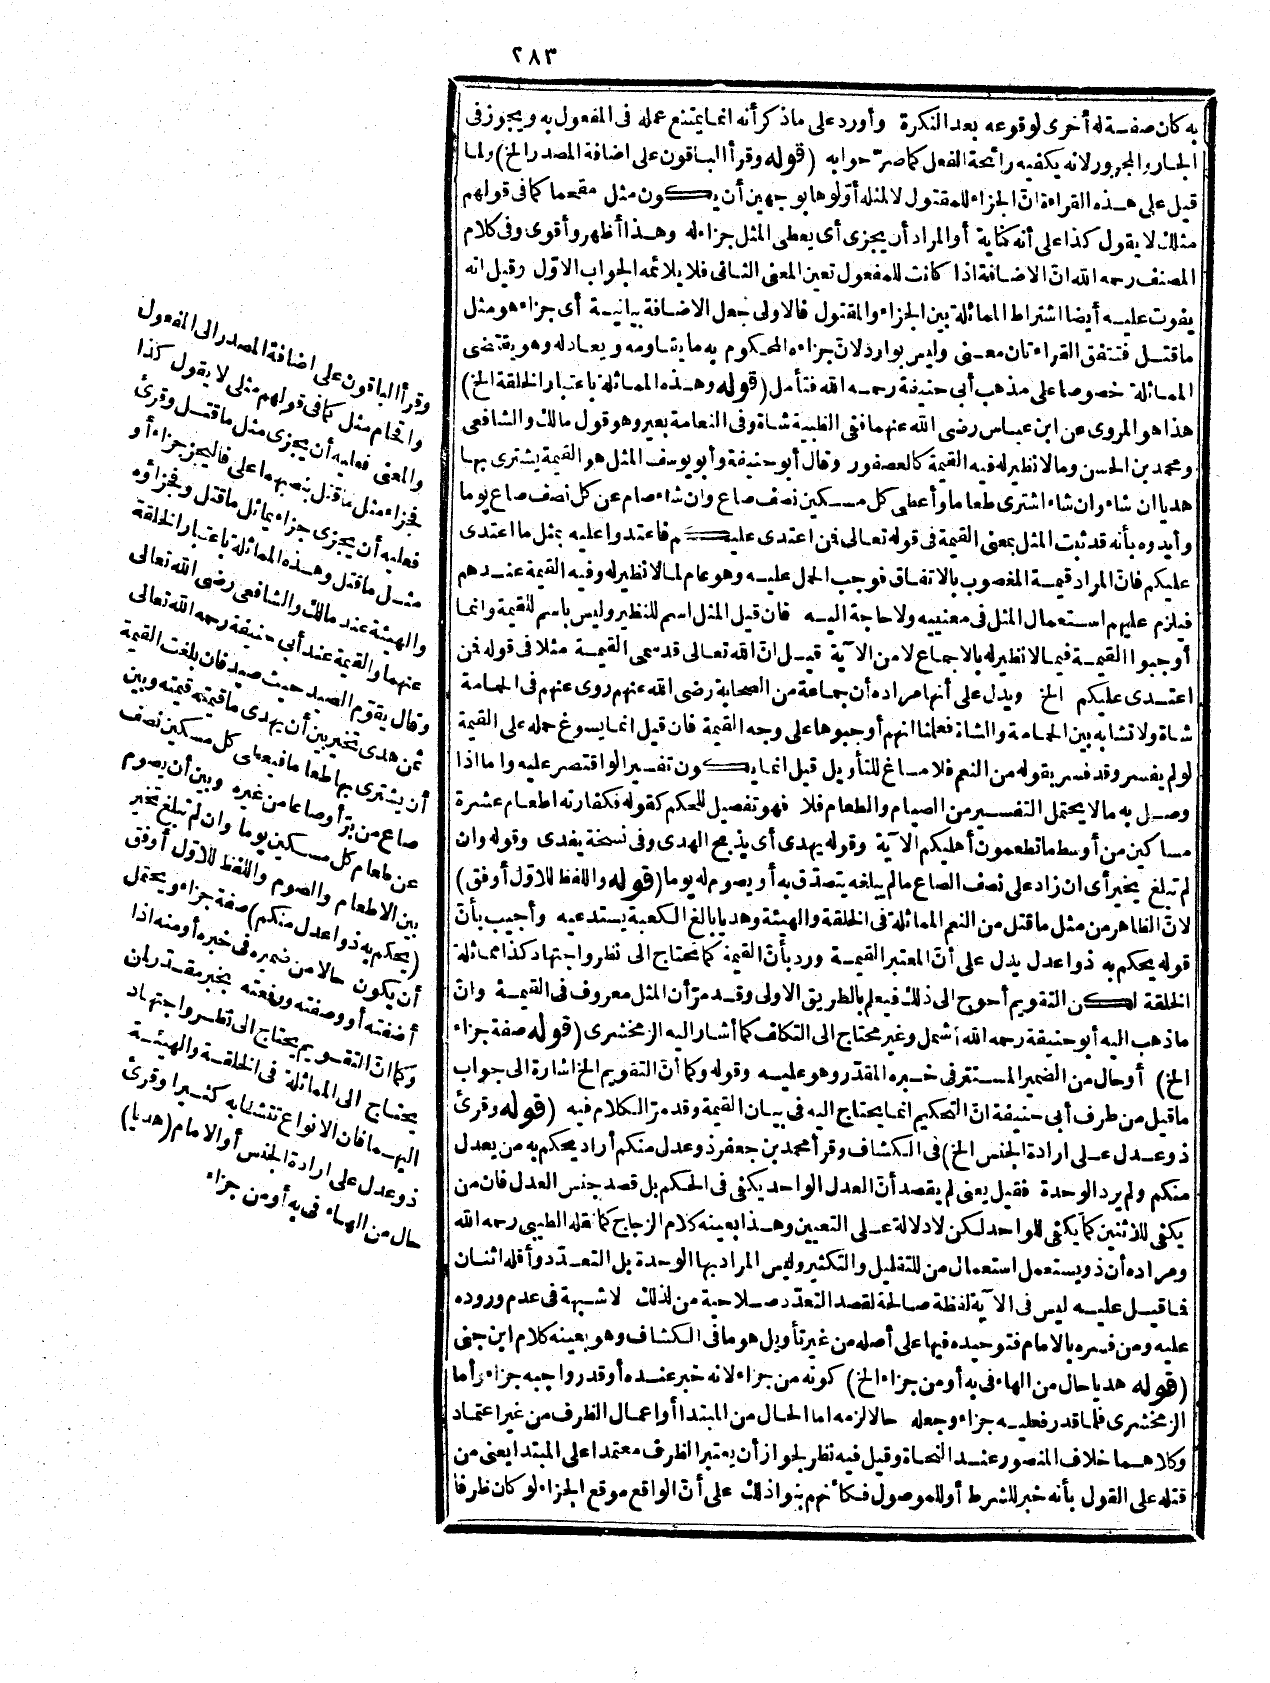 ٢٨٣
به كان صفة له أخرى لوقوعه بعد النكرة وأورد على ماذكر أنه انما يمتنع عمله فى المفعول به ويجوز فى
الجار والمجرور لانه يكفيه رائحة الفعل كما صرّحوا به (قوله وقرأ الباقون على اضافة المصدر الخ) ولما
قيل على هذه القراءة انّ الجزاء للمقتول لا لمثله أوّلوها بوجهين أن يكون مثل مقحما كما فى قولهم
مثلك لا يقول كذا على أنه كناية أو المراد أن يجزى أى يعطى المثل جزاءله وهذا أظهر وأقوى وفى كلام
المصنف رحمه الله انّ الاضافة اذا كانت للمفعول تعين المعنى الثانى فلا يلائمه الجواب الاوّل وقيل انه
يفوت عليه أيضا اشتراط المماثلة بين الجزاء والمقتول فالاولى جعل الاضافة بيانية أى جزاء هو مثل
ماقتل فتتفق القراءتان معنى وليس بوارد لانّ جزاءه المحكوم به ما يقاومه ويعادله وهو يقتضى
المماثلة خصوصا على مذهب أبى حنيفة رحمه الله فتأمل (قوله وهذه المماثلة باعتبار الخلقة الخ)
هذا هو المروى عن ابن عباس رضى الله عنهما ففى الظبية شاة وفى النعامة بعير وهو قول مالك والشافعى
ومحمد بن الحسن وما لا نظير له فيه القيمة كالعصفور وقال أبو حنيفة وأبو يوسف المثل هو القيمة يشترى بها
هديا ان شاء وان شاء اشترى طعاما وأعطى كل مسكين نصف صاع وان شاء صام عن كل نصف صاع يوما
وأيدوه بأنه قد ثبت المثل بمعنى القيمة فى قوله تعالى فمن اعتدى عليكم فاعتدوا عليه بمثل ما اعتدى
عليكم فانّ المراد قيمة المغصوب بالاتفاق فوجب الحمل عليه وهو عام لما لا نظير له وفيه القيمة عندهم
فيلزم عليهم استعمال المثل فى معنييه ولا حاجة اليه فان قيل المثل اسم للنظير وليس باسم للقيمة وانما
أوجبوا القيمة فيما لا نظير له بالاجماع لا من الآية قيل انّ الله تعالى قد سمى القيمة مثلا فى قوله فمن
اعتدى عليكم الخ ويدل على أنها مراده أن جماعة من الصحابة رضى الله عنهم روى عنهم فى الحمامة
شاة ولا تشابه بين الحمامة والشاة فعلمنا انهم أوجبوها على وجه القيمة فان قيل انما يسوغ حمله على القيمة
لو لم يفسر وقد فسر بقوله من النعم فلا مساغ للتأويل قيل انما يكون تفسيرا لو اقتصر عليه واما اذا
وصل به ما لا يحتمل التفسير من الصيام والطعام فلا فهو تفصيل للحكم كقوله فكفارته اطعام عشرة
مساكين من أوسط ما تطعمون أهليكم الآية وقوله يهدى أى يذبح الهدى وفى نسخة يفدى وقوله وان
لم تبلغ يخير أى ان زاد على نصف الصاع ما لم يبلغه يتصدّق به أو يصوم له يوما (قوله واللفظ للاوّل أوفق)
لانّ الظاهر من مثل ما قتل من النعم المماثلة فى الخلقة والهيئة وهديا بالغ الكعبة يستدعيه وأجيب بأنّ
قوله يحكم به ذوا عدل يدل على أنّ المعتبر القيمة ورد بأنّ القيمة كما يحتاج الى نظر واجتهاد كذا مماثلة
الخلقة لكن التقويم أحوج الى ذلك فيعلم بالطريق الاولى وقد مرّ أن المثل معروف فى القيمة وانّ
ما ذهب اليه أبو حنيفة رحمه الله أشمل وغير محتاج الى التكلف كما أشار اليه الزمخشرى (قوله صفة جزاء
الخ) أو حال من الضمير المستتر فى خبره المقدّر وهو عليه وقوله وكما أنّ التقويم الخ اشارة الى جواب
ما قيل من طرف أبى حنيفة انّ التحكيم انما يحتاج اليه فى بيان القيمة وقد مرّ الكلام فيه (قوله وقرئ
ذو عدل على ارادة الجنس الخ) فى الكشاف وقرأ محمد بن جعفر ذو عدل منكم أراد يحكم به من يعدل
منكم ولم يرد الوحدة فقيل يعنى لم يقصد أنّ العدل الواحد يكفى فى الحكم بل قصد جنس العدل فان من
يكفى للاثنين كما يكفى للواحد لكن لا دلالة على التعيين وهذا بعينه كلام الزجاج كما نقله الطيبى رحمه الله
ومراده أن ذو يستعمل استعمال من للتقليل والتكثير وليس المراد بها الوحدة بل التعدّد وأقله اثنان
فما قيل عليه ليس فى الآية لفظة صالحة لقصد التعدّد صلاحية من لذلك لا شبهة فى عدم وروده
عليه ومن فسره بالامام فتوحيده فيها على أصله من غير تأويل هو ما فى الكشاف وهو بعينه كلام ابن جنى
(قوله هديا حال من الهاء فى به أو من جزاء الخ) كونه من جزاء لانه خبر عنده أو قدر واجبه جزاء وأما
الزمخشرى فلما قدر فعليه جزاء وجعله حالا لزمه اما الحال من المبتدا أو اعمال الظرف من غير اعتماد
وكلاهما خلاف المنصور عند النحاة وقيل فيه نظر لجواز أن يعتبر الظرف معتمدا على المبتدا يعنى من
قتله على القول بأنه خبر للشرط أو للموصول فكأنهم بنوا ذلك على أنّ الواقع موقع الجزاء لو كان ظرفا
وقرأ الباقون على اضافة المصدر الى المفعول
واقحام مثل كما فى قولهم مثلى لا يقول كذا
والمعنى فعليه أن يجزى مثل ما قتل وقرئ
فجزاء مثل ما قتل بنصبهما على فاليجز جزاء أو
فعليه أن يجزى جزاء يماثل ما قتل وفجزاؤه
مثل ما قتل وهذه المماثلة باعتبار الخلقة
والهيئة عند مالك والشافعى رضى الله تعالى
عنهما والقيمة عند أبى حنيفة رحمه الله تعالى
وقال يقوّم الصيد حيث صيد فان بلغت القيمة
ثمن هدى تخير بين أن يهدى ما قيمته قيمته وبين
أن يشترى بها طعاما فيعطى كل مسكين نصف
صاع من برّ أو صاعا من غيره وبين أن يصوم
عن طعام كل مسكين يوما وان لم تبلغ تخير
بين الاطعام والصوم واللفظ للاوّل أوفق
(يحكم به ذوا عدل منكم) صفة جزاء ويحتمل
أن يكون حالا من ضميره فى خبره أو منه اذا
أضفته أو وصفته ورفعته بخبر مقدر لان
وكما انّ التقويم يحتاج الى نظر واجتهاد
يحتاج الى المماثلة فى الخلقة والهيئة
اليهما فان الانواع تتشابه كثيرا وقرئ
ذو عدل على ارادة الجنس أو الامام (هديا)
حال من الهاء فى به أو من جزاء